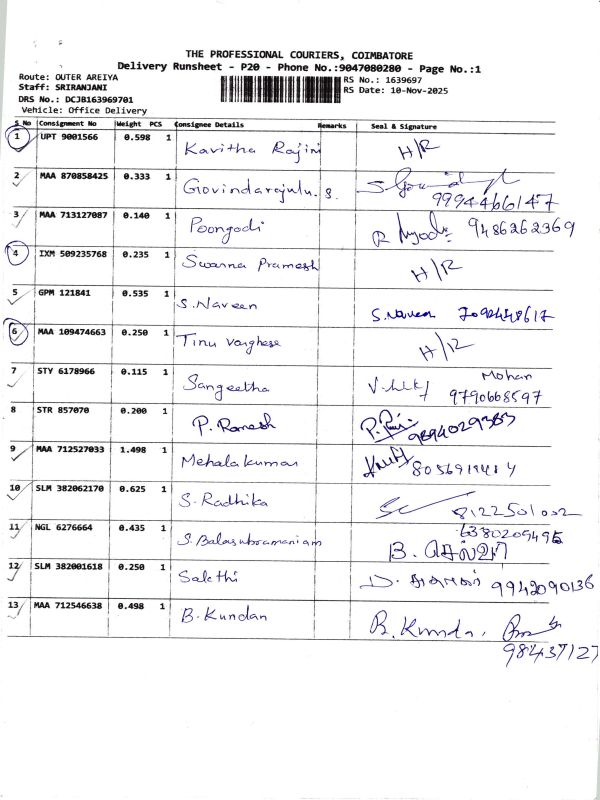 THE PROFESSIONAL COURIERS, COIMBATORE
Delivery Runsheet - P20 - Phone No.:9047080280 - Page No.:1
Route: OUTER AREIYA RS No.: 1639697
Staff: SRIRANJANI RS Date: 10-Nov-2025
DRS No.: DCJB163969701
Vehicle: Office Delivery
S No Consignment No Weight PCS Consignee Details Remarks Seal & Signature
1 UPT 9001566 0.598 1 Kavitha Rajini H/R
2 MAA 870858425 0.333 1 Govindarajulu. S. 9994466147
3 MAA 713127087 0.140 1 Poongodi 9486262369
4 IXM 509235768 0.235 1 Swarna Pramesh H/R
5 GPM 121841 0.535 1 S. Naveen S. Naveen
6 MAA 109474663 0.250 1 Tinu Varghese H/R
7 STY 6178966 0.115 1 Sangeetha Mohan
9790668597
8 STR 857070 0.200 1 P. Ramesh 9894029383
9 MAA 712527033 1.498 1 Mehalakumar
10 SLM 382062170 0.625 1 S. Radhika 8122501002
11 NGL 6276664 0.435 1 S. Balasubramaniam 6380209495
B. செல்வி
12 SLM 382001618 0.250 1 Sakthi D. 9942090136
13 MAA 712546638 0.498 1 B. Kundan B. Kunda.
984437127